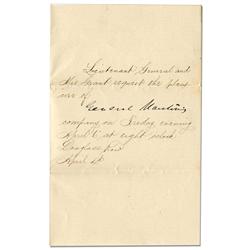 Lieutenant General and
Mrs Grant request the pleas
ure of
General
company on Friday evening
April 6" at eight oclock
Douglass Row
April 4"